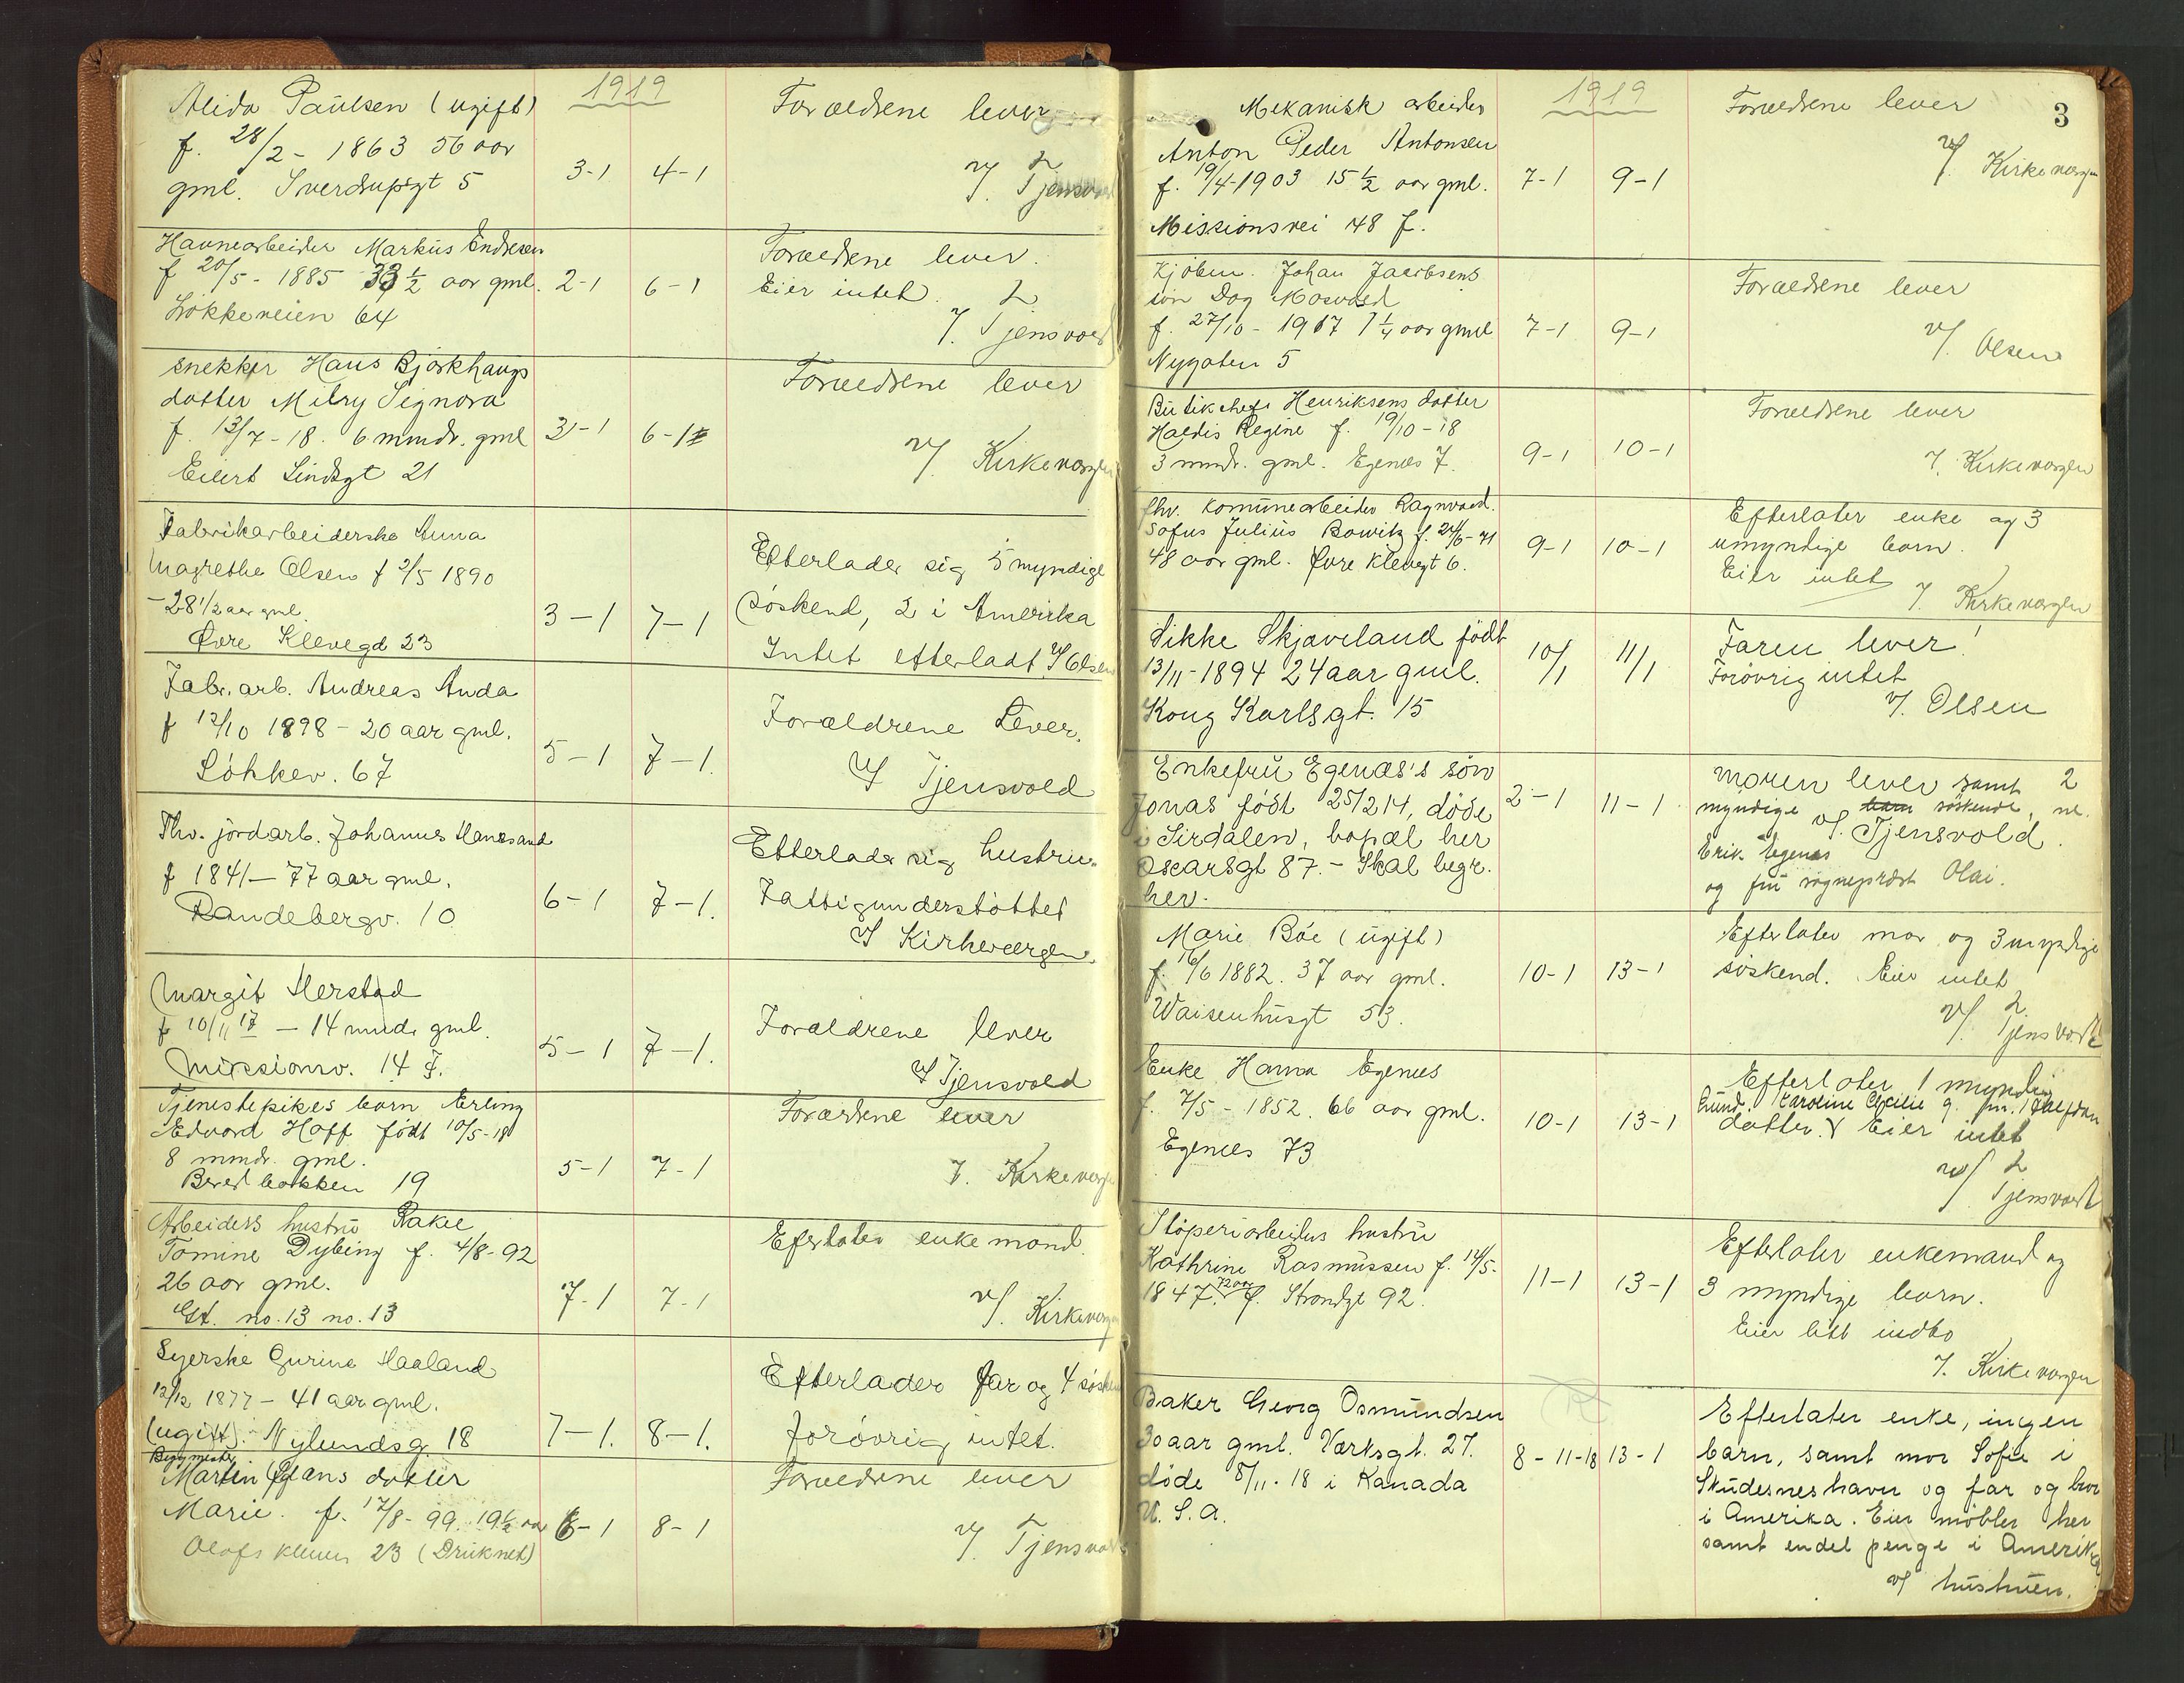 Alida Paulsen (ugift)
f. 28/2 - 1863 56 aar
gml. Sverdrupsgt 5
1919
3-1 4-1
Foræeldrene lever
v/ L. Tjensvold
Havnearbeider Markus Endresen
f 20/5 - 1885 33 1/2 aar gml.
Løkkeveien 64
2-1 6-1
Forældrene lever.
Eier intet.
L
/. Tjensvold
snekker Hans Bjørkhaugs
datter Milry Signora
f. 13/7 - 18. 6 mndr. gml
Eilert Sundtsgt 21
3-1 6-1
Forældrene lever
v/ Kirkevergen
Fabrikarbeiderske Anna
Magrethe Olsen f 2/5 1890
- 28 1/2 aar gml.
Øvre Klevegd 23
3-1 7-1
Efterlader sig 5 myndige
søskend, 2 i Amerika
Intet efterladt. v/ Olsen
Fabr. arb. Andreas Anda
f 12/10 1898 - 20 aar gml.
Løkkev. 67
5-1 7-1.
Forældrene Lever.
v/ Tjensvold
Fhv. jordarb. Johannes Hanasand
f 1841 - 77 aar gml.
Randebergv. 10
6-1 7-1.
Efterlader sig hustru.
Fattigunderstøttet
v/ Kirkevergen.
Margit Herstad
f 10/11 17 - 14 mndr gml.
Missionsv. 14 F.
5-1 7-1.
Forældrene lever
v/ Tjensvold
Tjenestepikes barn Erling
Edvard Hoff født 10/5-18
8 mndr. gml.
Bere bakken 19
5-1 7-1
Forældrene lever
/. Kirkevergen
Arbeiders hustru Rakel
Tomine Dybing f. 4/8-92
26 aar gml.
Gt. no. 13 no. 13
7-1 7-1
Efterlater enkemand.
v/. Kirkevergen
Syerske Gurine Haaland
12/12 1877 - 41 aar gml.
(ugift). Nylundsg. 18
7-1. 8-1.
Efterlader far og 4 søsken
forøvrig intet.
Martin datter
Marie. f. 17/8-99. 19 1/2 aar
Olafs kleven 23 (Druknet)
6-1 8-1
Forældrene lever
v/. Tjensvold
3
Mekanisk arbeider
Anton Peder Antonsen
f. 19/4-1903 15 1/2 aar gml.
Missionsvei 48 F.
1919
7-1 9-1
Forældrene lever
v/. Kirkevergen
Kjøbm. Johan Jacobsens
søn Dag Mosvold
f. 27/10 - 1917 1 1/4 aar gml
Nygaten 5
7-1 9-1
Forældrene lever
v/. Olsen
Butikchef Henriksens datter
Haldis Regine f. 19/10-18
3 mndr. gml. Egenes 7.
9-1 10-1
Forældrene lever
/. Kirkevergen
fhv. Komunearbeider Ragnvald
Sofus Julius Bowitz f. 24/6-71
48 aar gml. Øvre Klevegt 6.
9-1 10-1
Efterlater enke og 3
umyndige barn.
Eier intet
/. Kirkevergen
Sikke Skjæveland født
13/11-1894 24 aar gml.
Kong Karlsgt. 15
10/1 11/1
Faren lever!
Forøvrig intet
v/. Olsen
Enkefru Egenæs's søn
Jonas født 25/2 14, døde
i Sirdalen, bopæl her
Oscarsgt 87. - Skal begr.
her.
2-1 11-1
Moren lever samt 2
myndige barn søskende, nl.
v/. Tjensvold.
Erik Egenæs
og fru sogneprest Olai.
Marie Bøe (ugift)
f. 16/6 1882. 37 aar gml.
Waisenhusgt 53.
10-1 13-1
Efterlater mor og 3 myndige
søskend. Eier intet
v/. L. Tjensvold
Enke Hanna Egenes
f. 7/5 - 1852. 66 aar gml.
Egenes 73
10-1 13-1
Efterlater 1 myndig
Caroline Cecilie g.
datter. Eier intet
v/ L. Tjensvold
Støperiarbeiders hustru
Kathrine Rasmussen f. 14/5-
1847. 72 aar Strandgt 92.
11-1 13-1
Efterlater enkemand og
3 myndige barn.
Eier litt indbo
/. Kirkevergen
Baker Georg Osmundsen
30 aar gml. Værksgt. 27.
døde 8/11-18 i Kanada
U.S.A.
8-11-18 13-1
Efterlater enke, ingen
barn, samt mor Sofie i
Skudesneshavn og far og bror
i Amerika. Eier møbler her
samt endel penge i Amerika
v/ hustruen.